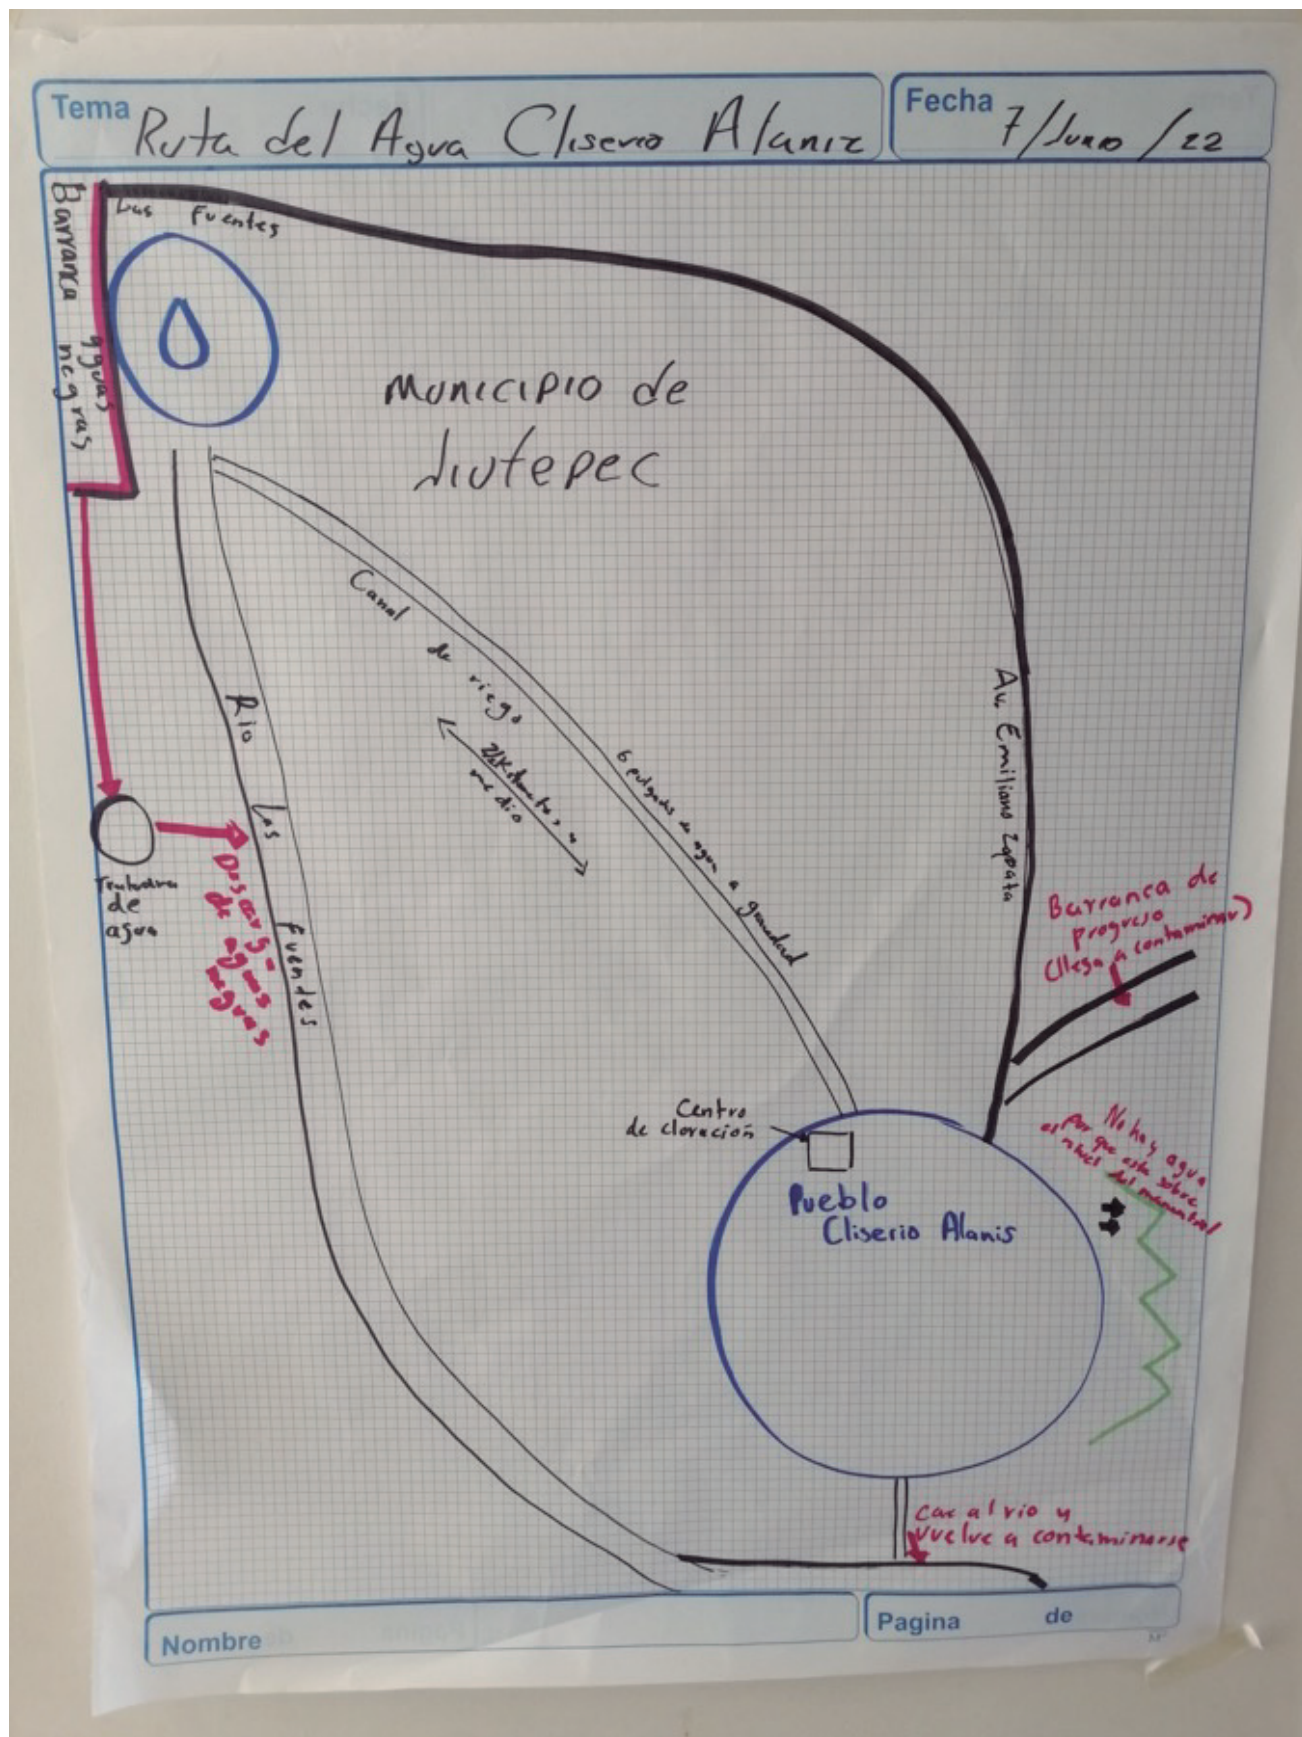 Tema Ruta del Agua Cliserio Alaniz
Fecha 7/Junio/22
Barranca aguas
negras
Las Fuentes
Municipio de
Jiutepec
Canal de riego
kilometro y
medio
6 pulgadas de agua a gravedad
Av. Emiliano Zapata
Rio Las Fuendes
Tratadora
de
agua
Descarga
de aguas
negras
Barranca de
progreso
(llega a contaminar)
Centro
de cloración
No hay agua
por que esta sobre
el nivel del manantial
Pueblo
Cliserio Alanis
Cae al rio y
vuelve a contaminarse
Nombre
Pagina de